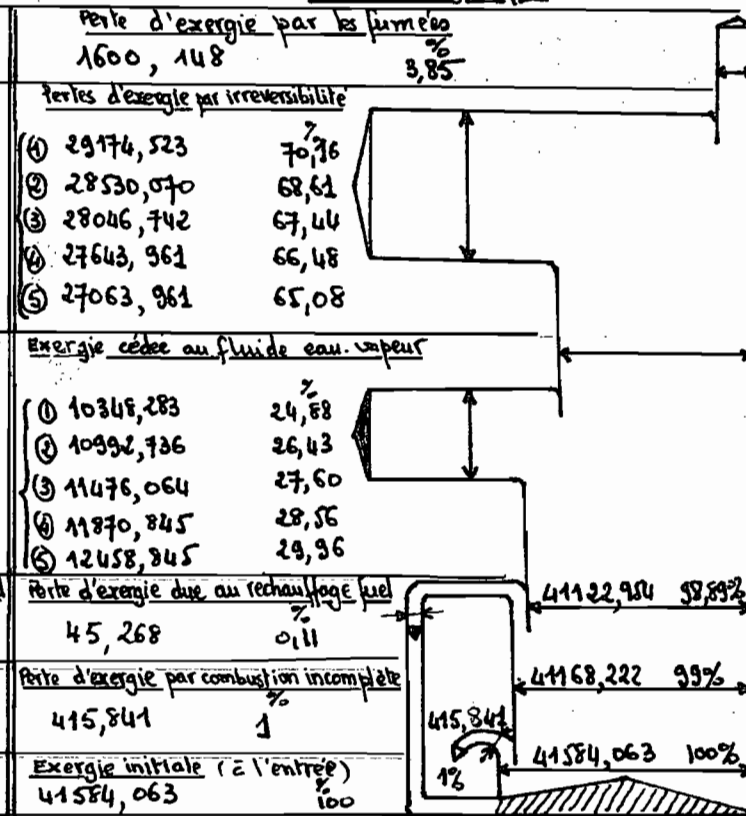 Perte d'exergie par les fumées
%
1600, 148 3,85
Pertes d'exergie par irreversibilité
%
① 29174,523 70,16
② 28530,070 68,61
③ 28046,742 67,44
④ 27643,961 66,48
⑤ 27063,961 65,08
Exergie cédée au fluide eau-vapeur
%
① 10348,283 24,88
② 10992,736 26,43
③ 11476,064 27,60
④ 11870,845 28,56
⑤ 12458,845 29,96
Perte d'exergie due au rechauffage fuel
%
45,268 0,11
41122,954 98,89%
Perte d'exergie par combustion incomplète
%
415,841 1
41168,222 99%
415,841
1%
Exergie initiale (à l'entrée)
%
41584,063 100
41584,063 100%